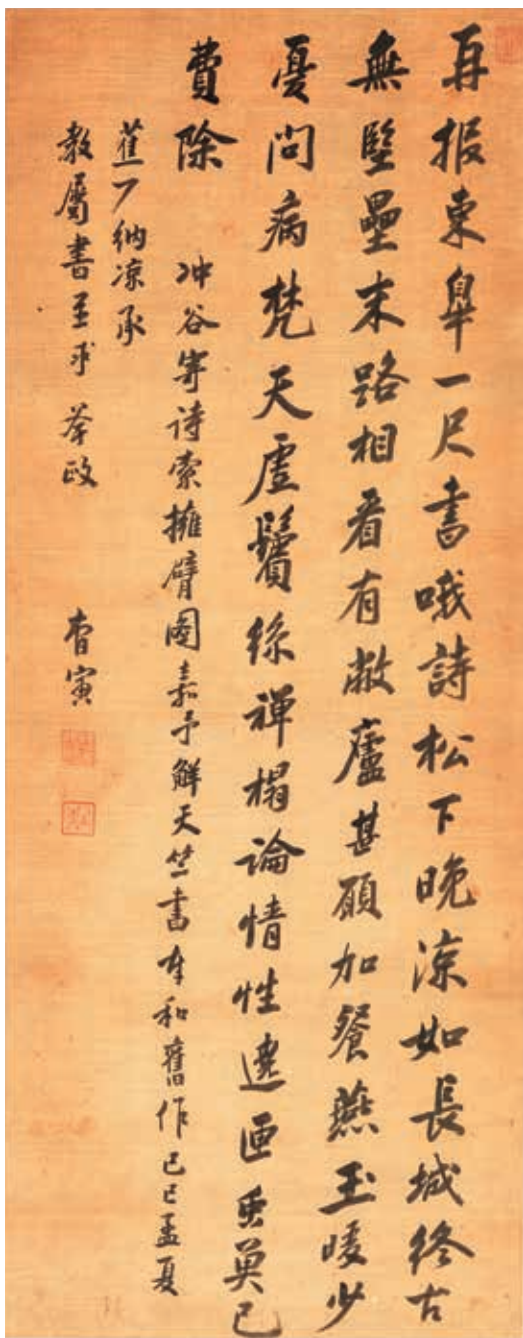 再报東臯一尺書哦詩松下晚凉如長城終古
無堅壘末路相看有敝廬甚願加餐燕玉暖少
憂問病梵天虛鬢絲禪榻論情性遶匝已
費除 冲谷寄诗索擁臂圖嘉予解天竺書本和舊作己巳孟夏
蕉丁納凉承
教屬書並求 荃政 曹寅